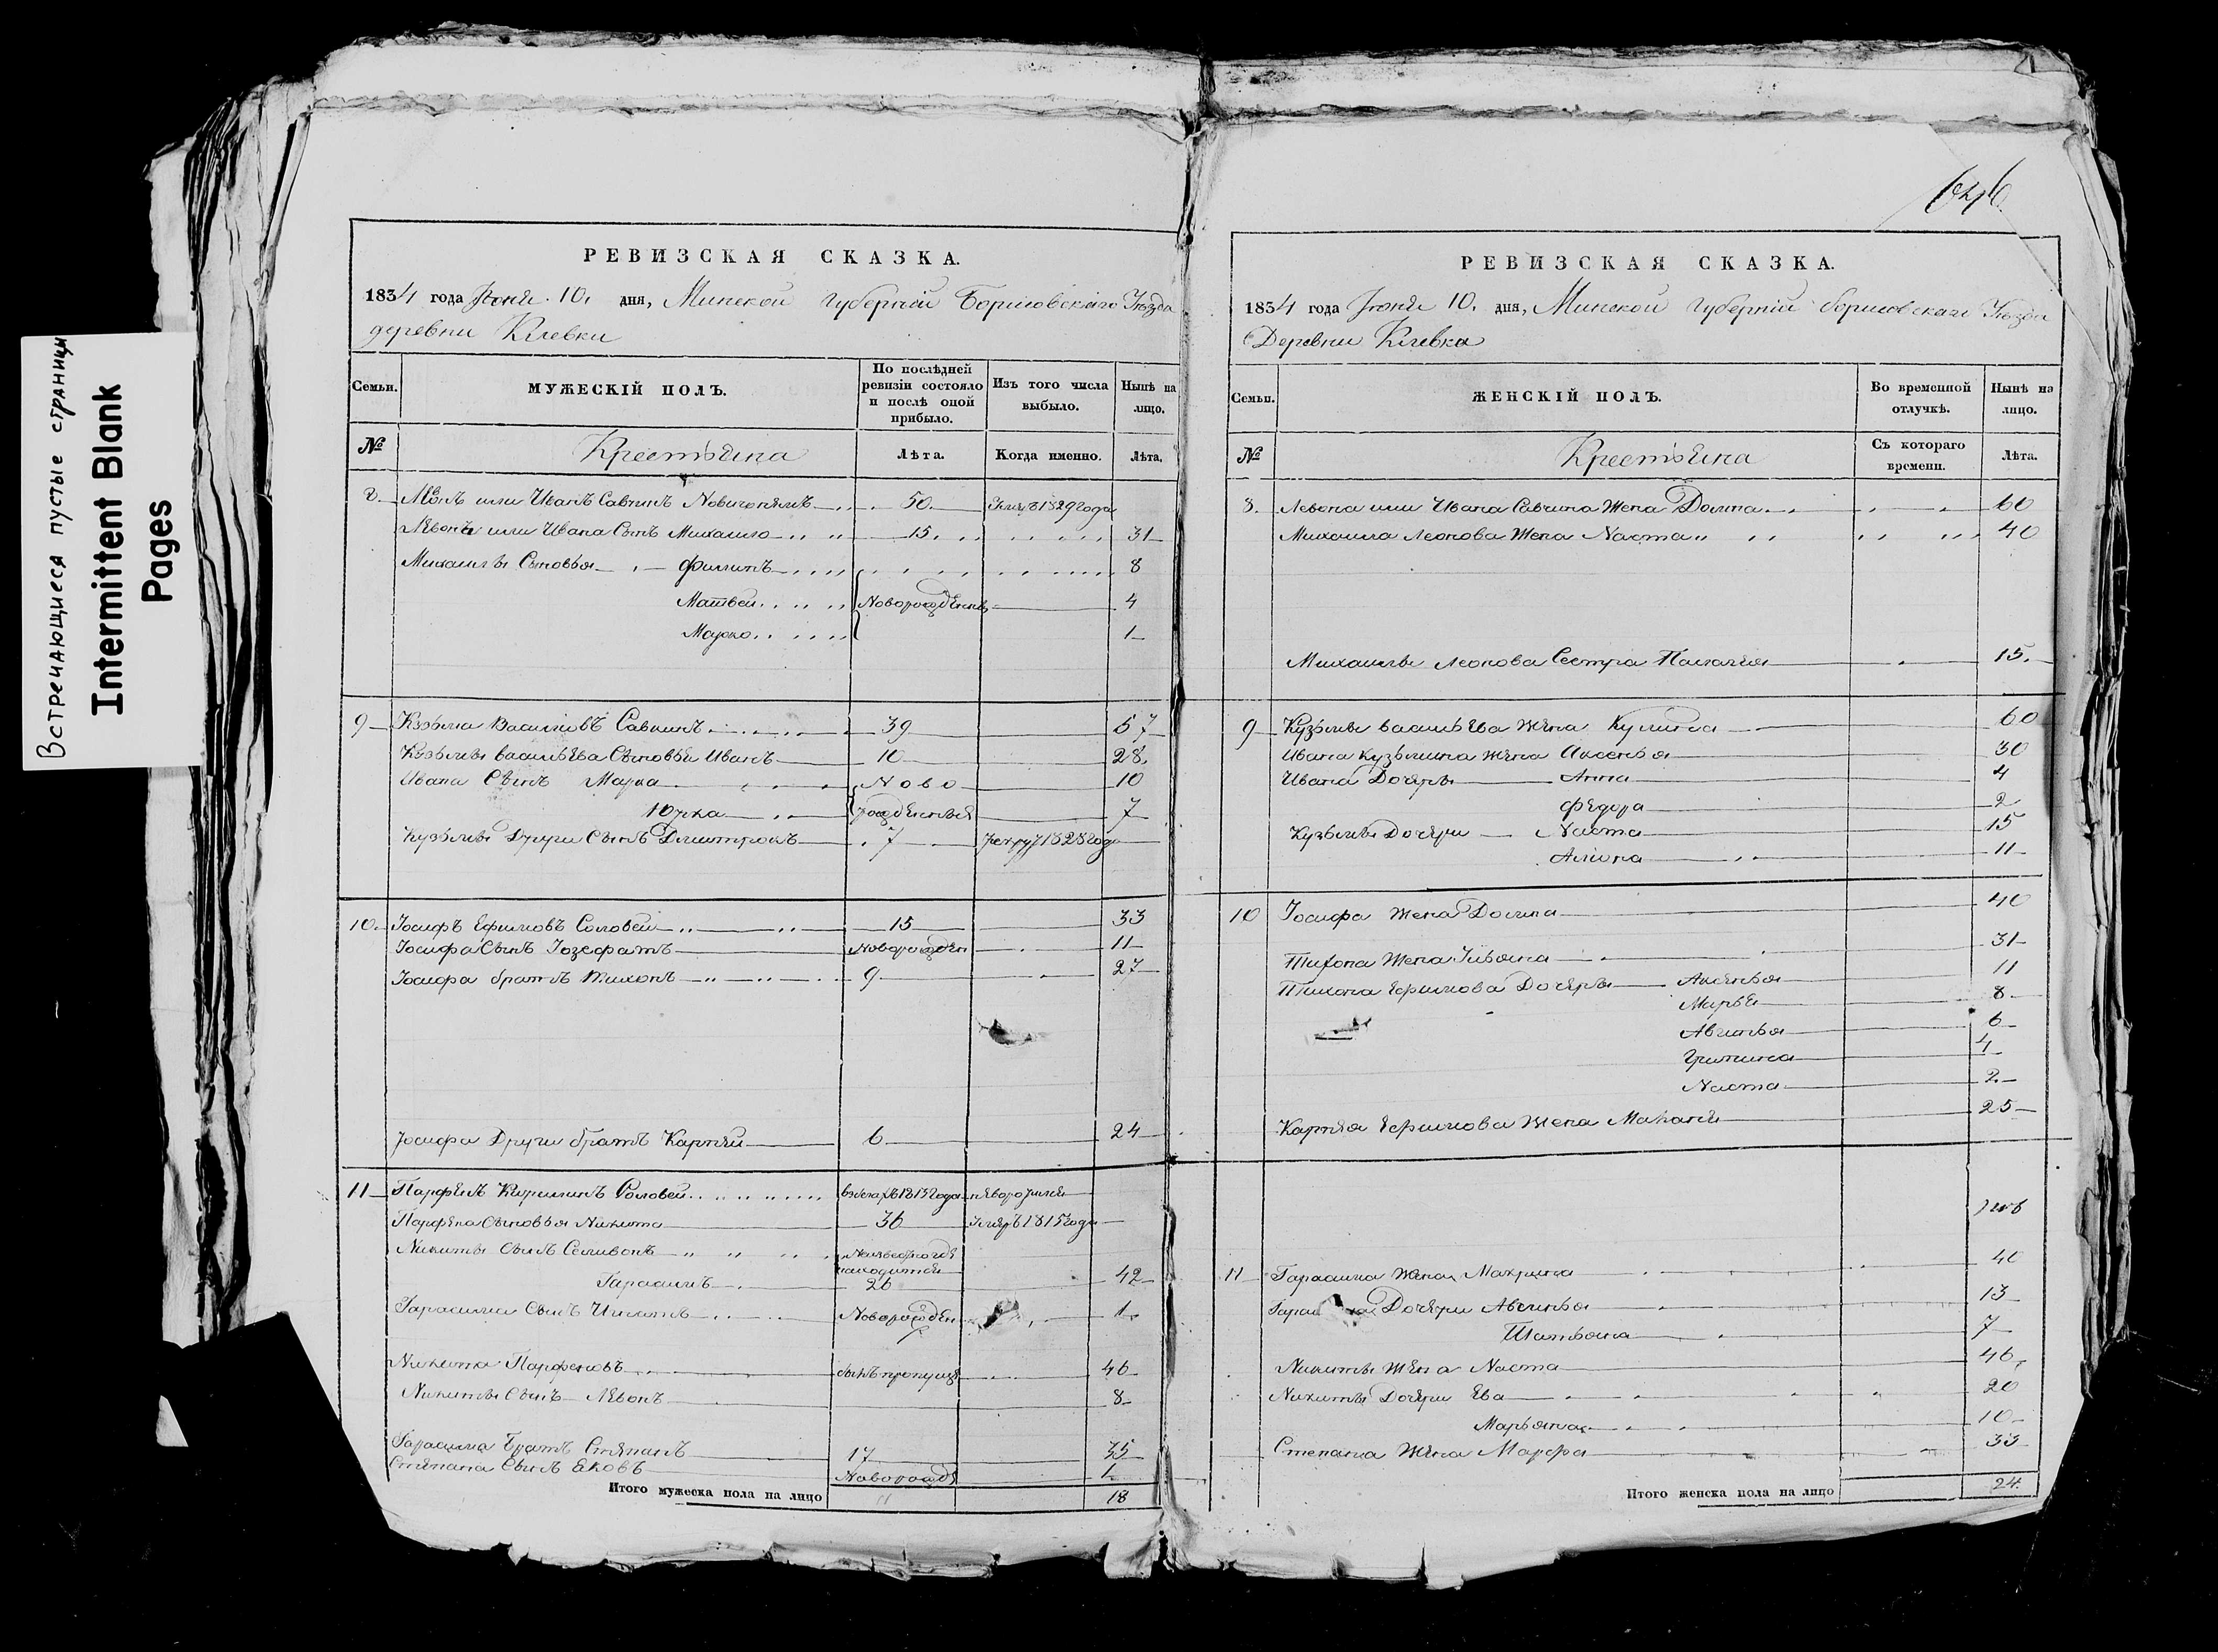 Встречающиеся пустые страници
Intermittent Blank
Pages
РЕВИЗСКАЯ СКАЗКА.
1834 года Іюня 10. дня, Минской губерніи Борисовскаго Уѣзда
деревни Клевки
Семьи.
МУЖЕСКІЙ ПОЛЪ.
По послѣдней ревизіи состояло и послѣ оной прибыло.
Изъ того числа выбыло.
Нынѣ на лицо.
№
Крестьяна
Лѣта.
Когда именно.
Лѣта.
8. или Иванъ Савчинъ 50 1829 года
Левона или Ивана Сынъ Михайло 15 31
Михайлы Сыновья Филипъ 8
Матвей Новорожденны 4
Марко 1
9 Кузьма Васильевъ Савчинъ 39 57
Кузьмы Васильева Сыновьи Иванъ 10 28
Ивана Сынъ Марка Ново 10
Юрка рожденныя 7
Кузьмы Други Сынъ Дмитрокъ 7 рекру 1828 года
10. Іосифъ Ефимовъ Соловей 15 33
Іосифа Сынъ Іозефатъ Новорожден 11
Іосифа братъ Тихонъ 9 27
Іосифа Други братъ Карпей 6 24
11 Парфенъ Кирилинъ Соловей 1813 года
Парфена Сыновья Никита 36 1815 года
Никиты Сынъ Селивонъ
находится
Гарасимъ 26 42
Гарасима Сынъ Игнатъ Новорожден 1
Никита Парфеновъ 46
Никиты Сынъ Левонъ 8
Гарасима Братъ Степанъ 17 35
Степана Сынъ Яковъ Новорожде 1
Итого мужеска пола на лицо 18
646
РЕВИЗСКАЯ СКАЗКА.
1834 года Іюня 10. дня, Минской губерніи борисовскаго Уѣзда
Деревни Клевки
Семьи.
ЖЕНСКІЙ ПОЛЪ.
Во временной отлучкѣ.
Нынѣ на лицо.
№
Крестьяна
Съ котораго времени.
Лѣта.
8. Левона или Ивана Савчина Жена Домна 60
Михаила Леонова Жена Наста 40
Михаилы Леонова Сестра Палагея 15
9 Кузьмы васильева жена Кулина 60
Ивана Кузьмина жена Аксенья 30
Ивана Дочеры Анна 4
Федора 2
Кузьмы Дочери Наста 15
Алиона 11
10 Іосифа Жена Домна 40
Тихона Жена Ульяна 31
Тихона Ефимова Дочеры Аксенья 11
Марья 8
Авгинья 6
Грипина 4
Наста 2
Карпея Ефимова Жена Маланя 25
11 Гарасима Жена Макрина 40
Дочери Авгинья 13
Татьяна 7
Никиты Жена Наста 46
Никиты Дочери Ева 20
Марьяна 10
Степана Жена Марфа 33
Итого женска пола на лицо 24.